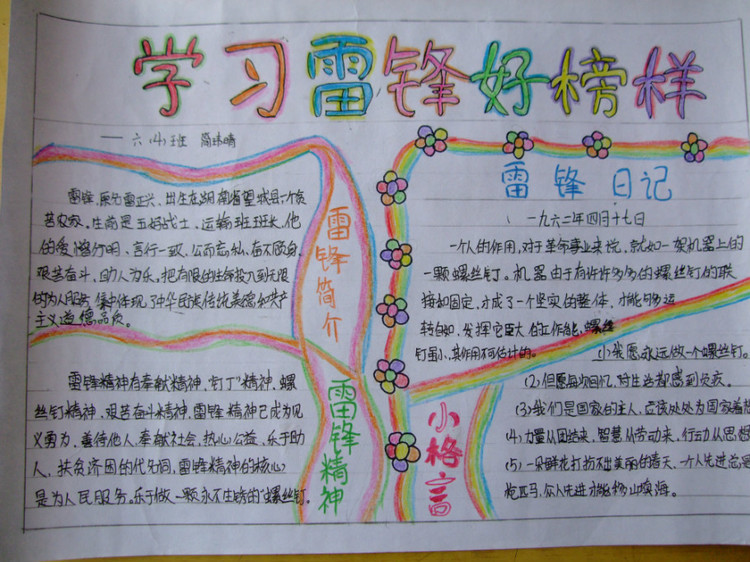 学习雷锋好榜样
六(4)班
雷锋简介
雷锋,原名雷正兴,出生在湖南省望城县一个贫
苦农家,生前是五好战士,运输班班长,他
的爱憎分明、言行一致、公而忘私、奋不顾身、
艰苦奋斗、助人为乐,把有限的生命投入到无限
的为人服务,集中体现了中华民族传统美德和共产
主义道德品质。
雷锋精神
雷锋精神有奉献精神,"钉丁"精神,螺
丝钉精神,艰苦奋斗精神,雷锋精神已成为见
义勇为,善待他人,奉献社会,热心公益,乐于助
人,扶贫济困的代名词,雷锋精神的核心
是为人民服务。乐于做一颗永不生锈的"螺丝钉。
雷锋日记
一九六二年四月十七日
一个人的作用,对于革命事业来说,就如一架机器上的
一颗螺丝钉。机器由于有许许多多的螺丝钉的联
接和固定,才成了一个坚实的整体,才能够运
转自如,发挥它巨大的工作能,螺丝
钉虽小,其作用不可估计的。
小格言
(1)我愿永远做一个螺丝钉。
(2)但愿每次回忆,对生活都感到负疚。
(3)我们是国家的主人,应该处处为国家着想
(4)力量从团结来,智慧从劳动来,行动从思想
(5)一朵鲜花打扮不出美丽的春天,一个人先进总是
枪匹马,众人先进才能移山填海。